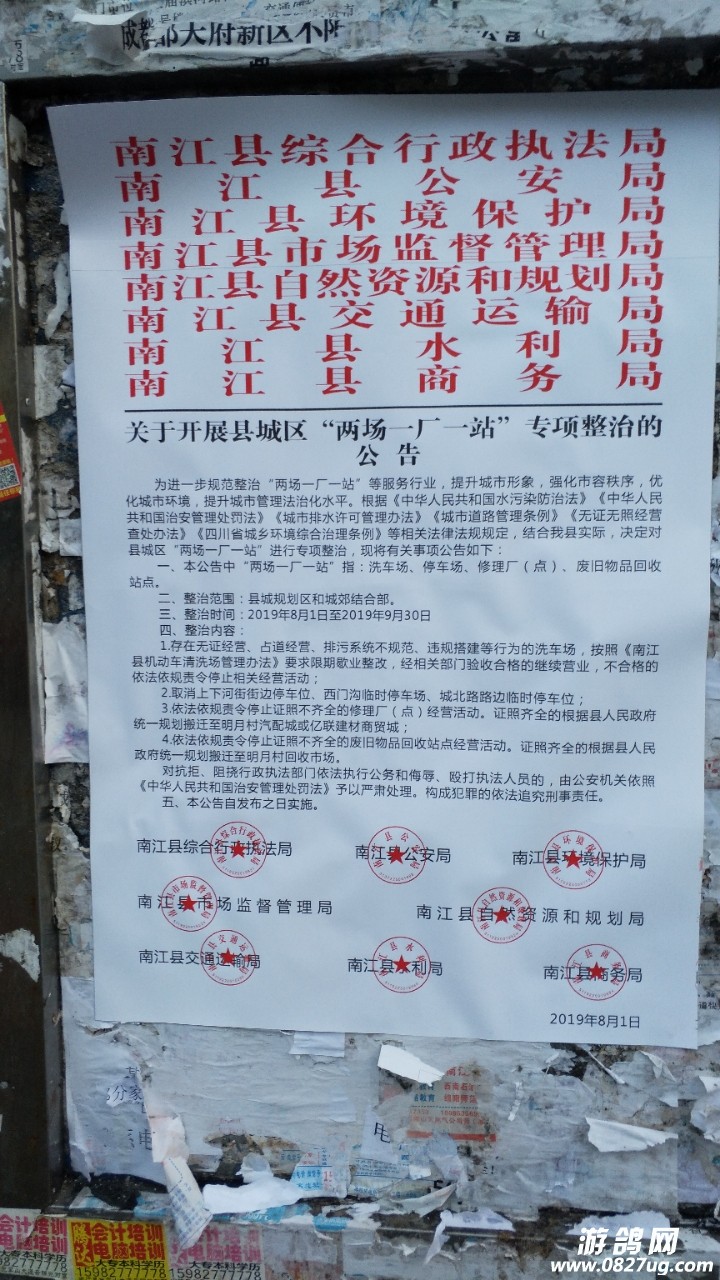 成都
大府新区不限
南江县综合行政执法局
南江县公安局
南江县环境保护局
南江县市场监督管理局
南江县自然资源和规划局
南江县交通运输局
南江县水利局
南江县商务局
关于开展县城区“两场一厂一站”专项整治的
公告
为进一步规范整治“两场一厂一站”等服务行业，提升城市形象，强化市容秩序，优
化城市环境，提升城市管理法治化水平。根据《中华人民共和国水污染防治法》《中华人民
共和国治安管理处罚法》《城市排水许可管理办法》《城市道路管理条例》《无证无照经营
查处办法》《四川省城乡环境综合治理条例》等相关法律法规规定，结合我县实际，决定对
县城区“两场一厂一站”进行专项整治，现将有关事项公告如下：
一、本公告中“两场一厂一站”指：洗车场、停车场、修理厂（点）、废旧物品回收
站点。
二、整治范围：县城规划区和城郊结合部。
三、整治时间：2019年8月1日至2019年9月30日
四、整治内容：
1.存在无证经营、占道经营、排污系统不规范、违规搭建等行为的洗车场，按照《南江
县机动车清洗场管理办法》要求限期歇业整改，经相关部门验收合格的继续营业，不合格的
依法依规责令停止相关经营活动；
2.取消上下河街街边停车位、西门沟临时停车场、城北路路边临时停车位；
3.依法依规责令停止证照不齐全的修理厂（点）经营活动。证照齐全的根据县人民政府
统一规划搬迁至明月村汽配城或亿联建材商贸城；
4.依法依规责令停止证照不齐全的废旧物品回收站点经营活动。证照齐全的根据县人民
政府统一规划搬迁至明月村回收市场。
对抗拒、阻挠行政执法部门依法执行公务和侮辱、殴打执法人员的，由公安机关依照
《中华人民共和国治安管理处罚法》予以严肃处理。构成犯罪的依法追究刑事责任。
五、本公告自发布之日实施。
南江县综合行政执法局 南江县公安局 南江县环境保护局
南江县市场监督管理局 南江县自然资源和规划局
南江县交通运输局 南江县水利局 南江县商务局
2019年8月1日
会计培训 会计培训 会计培训
电脑培训 电脑培训 电脑培训
大专本科学历 大专本科学历 大专本科学历
15982777778 15982777778
游鸽网
www.0827ug.com